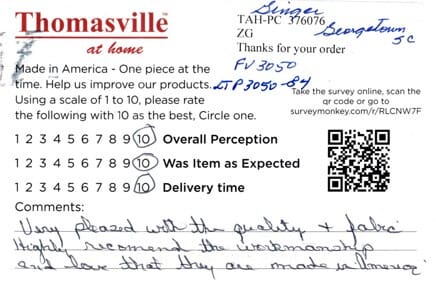 Thomasville
at home
Singer
TAH-PC 376076
ZG
Georgetown
SC
Thanks for your order
FV3050
LTP3050-84
Made in America - One piece at the
time. Help us improve our products.
Using a scale of 1 to 10, please rate
the following with 10 as the best, Circle one.
Take the survey online, scan the
qr code or go to
surveymonkey.com/r/RLCNW7F
1 2 3 4 5 6 7 8 9 10 Overall Perception
1 2 3 4 5 6 7 8 9 10 Was Item as Expected
1 2 3 4 5 6 7 8 9 10 Delivery time
Comments:
Very pleased with the quality + fabric
Highly recomend the workmanship
and love that they are made in America